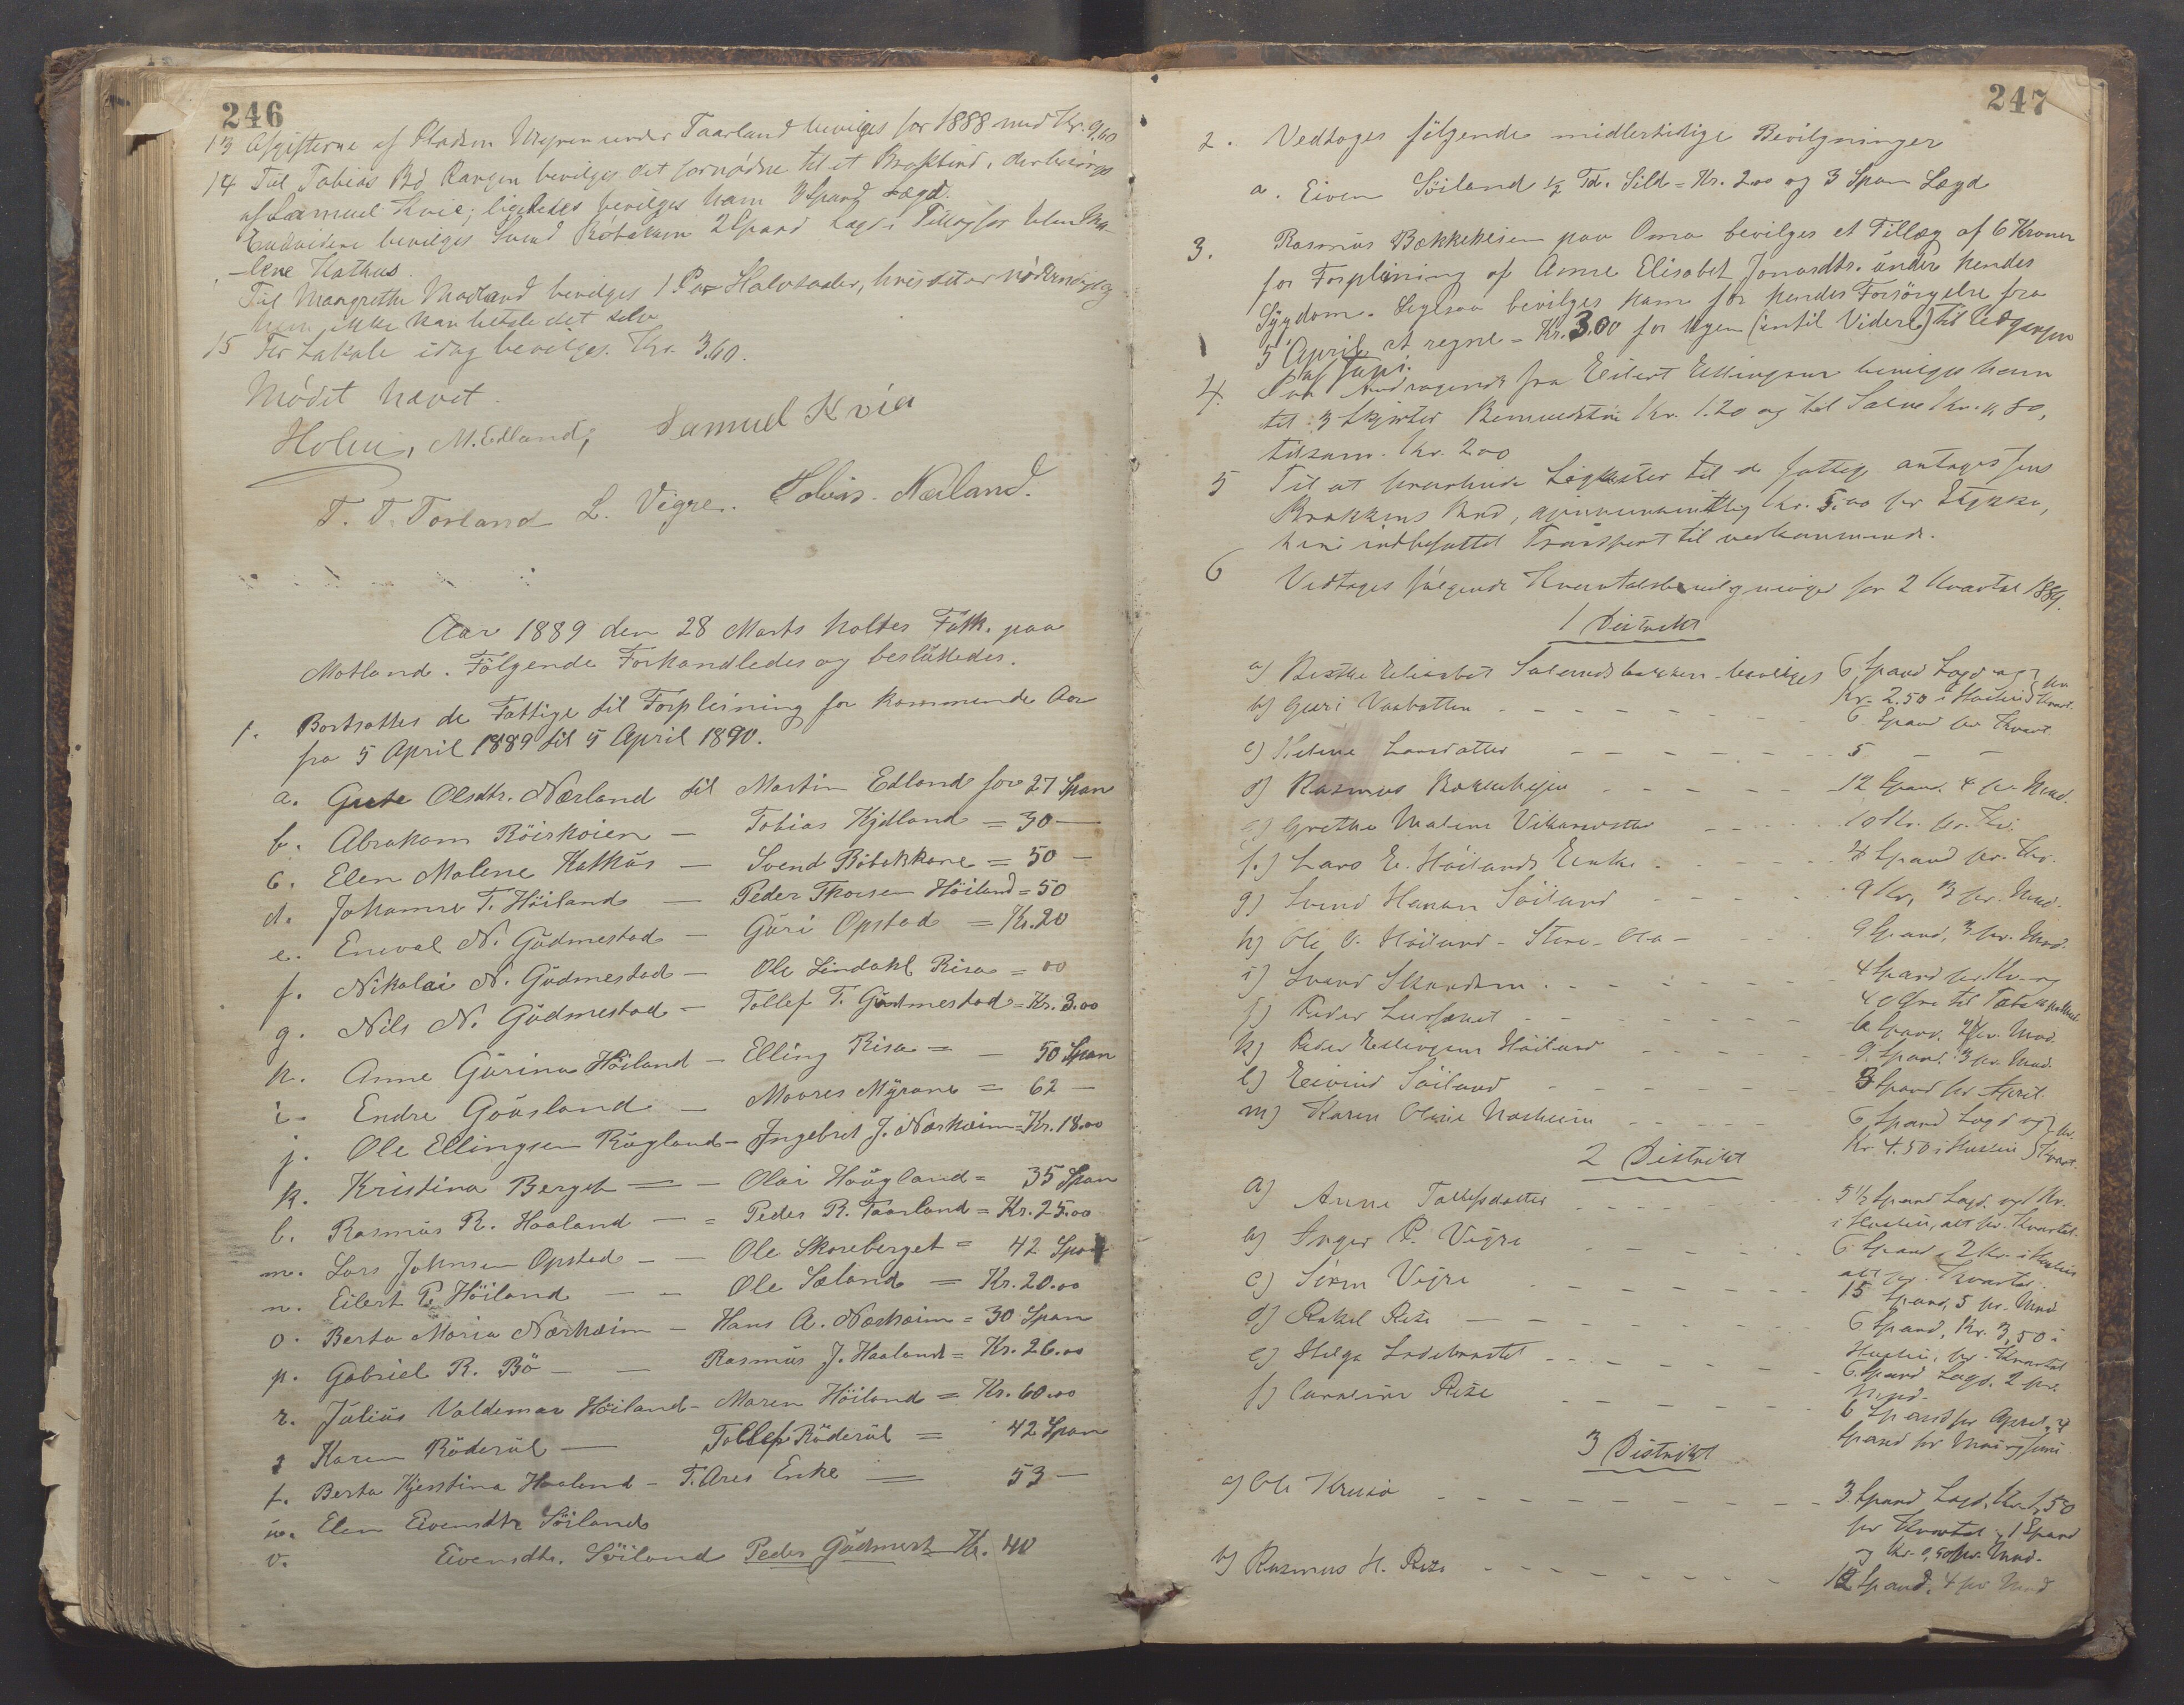 246
13 Afgifterne af Pladsen Myren under Taarland bevilges for 1888 med Kr. 9,60
14 Til Tobias Bö Rangen bevilges det fornødne til et Brokbind, der besørges
af Samuel Kvie; ligeledes bevilges ham 3 Spand Lægd.
Endvidere bevilges Svend Böbakken 2 Spand Lægd i Tillæg for Elen Ma-
lene Kathus.
Til Margrethe Motland bevilges 1 Par Halvsaaler, hvis det er nödvendig og
hun ikke kan betale det selv
15 For Lokale idag bevilges Kr. 3,60.
Mödet hævet.
Holm, M. Edland, Samuel Kvia
T. T. Torland L. Vigre. Tobias Næland.
Aar 1889 den 28 Marts holtes Fatk. paa
Motland. Fölgende Forhandledes og besluttedes.
1. Bortsattes de Fattige til Forpleining for kommende Aar
fra 5 April 1889 til 5 April 1890.
a. Gurte Olsdtr. Nærland til Martin Edland for 27 Span
b. Abraham Röiskoien — Tobias Kydland = 30 —
c. Elen Malene Kathus — Svend Böbakkane = 50 —
d. Johanne T. Höiland — Peder Thorsen Höiland = 50
e. Eneval N. Gudmestad — Guri Opstad = Kr. 20
f. Nikolai N. Gudmestad — Ole Lindahl Risa = 00
g. Nils N. Gudmestad — Tollef T. Gudmestad = Kr. 3.00
h. Anne Gurina Höiland — Elling Risa = — 50 Span
i. Endre Gousland — Maares Myrane = 62 —
j. Ole Ellingsen Rugland — Ingebret J. Nærheim = Kr. 18.00
k. Kristina Berget = — Olai Haugland = 35 Span
l. Rasmus R. Haaland — = Peder R. Taarland = Kr. 25.00
m. Lars Johnsen Opsted — Ole Skoreberget = 42 Span
n. Eilert P. Höiland — — Ole Sæland = Kr. 20.00
o. Berta Maria Nærheim — Hans A. Nærheim = 30 Span
p. Gabriel R. Bö — — Rasmus J. Haaland = Kr. 26.00
r. Julius Valdemar Höiland — Maren Höiland = Kr. 60.00
s Karen Röderul — Tollef Röderul = 42 Span
t. Berta Kjerstina Haaland — T. Ares Enke = 53 —
u. Elen Eivensdtr Söiland
v. Eivensdtr. Söiland Peder Gudmest Kr. 40
247
2. Vedtoges fölgende midlertidige Bevilgninger
a. Eiven Söiland ½ Td. Sild = Kr. 2.00 og 3 Span Lægd
3. Rasmus Bækkeheien paa Oma bevilges et Tillæg af 6 Kroner
for Forpleining af Anne Elisabet Jonasdtr. under hendes
Sygdom. Ligesaa bevilges ham for hendes Forsörgelse fra
5 April at regne = Kr. 3.00 for Ugen (intil Videre) til Udgangen
af Juni.
4. Paa Andragende fra Eilert Ellingsen bevilges ham
til 3 Skjorter Kr. 1.20 og til Kr. 0,80,
tilsam. Kr. 2.00
5 Til at Ligkister til de fattige antages Jens
Brakkens Bud, Kr. 5.00 pr Stykke,
heri indbefattet Transport til vedkommende.
6 Vedtages fölgende Kvartalsbevilgninger for 2 Kvartal 1889.
1 Distrikt
a) Berthe Elisabet bevilges 6 Spand Lægd og } pr
Kr. 2.50 i Husleie } Kvart.
b) Guri Vasbotten - - - 6 Spand pr Kvart
c) Helene Larsdatter - - - 5 — —
d) Rasmus Bækkehejen - - - 12 Spand. 4 pr. Mnd.
e) Grethe Malene - - - 10 Kr. pr. Kv.
f.) Lars E. Höilands Enke - - - 4 Spand pr. Kv.
g) Svend Haaan Söiland - - - 9 Kr, 3 pr. Mnd.
h) Ole V. Höiland - Stene-Ola - - - 9 Spand, 3 pr. Mnd.
i) Svend - - - 4 Spand pr. Kv. og
40 Øre til
j) Peder - - - 6 Spand. 2 pr. Mnd.
k) Peder Ellingsen Höiland - - - 9 Spand. 3 pr. Mnd.
l) Eivind Söiland - - - 3 Spand pr April.
m) Karen Oline Nærheim - - - 6 Spand Lægd og } pr.
Kr. 4.50 i Husleie } Kvart.
2 Distrikt
a) Anne Tollefsdatter - - - 5½ Spand Lægd. og Kr.
i Husleie, alt pr. Kvartal.
b) Inger P. Vigre - - - 6 Spand, 2 Kr. i Husleie
alt pr. Kvartal.
c) Sören Vigre - - - 15 Spand, 5 pr. Mnd
d) Rakel Risa - - - 6 Spand, Kr. 3,50 i
Husleie, pr. Kvartal
e) Helga - - - 6 Spand Lægd. 2 pr.
Mnd.
f) Risa - - - 6 Spand for April, 4
Spand for Mai og Juni
3 Distrikt
a) Ole - - - 3 Spand Lægd, Kr. 1,50
pr Kvartal, 1 Spand
og Kr. 0,50 pr. Mnd.
b) Rasmus H. Risa - - - 12 Spand, 4 pr Mnd